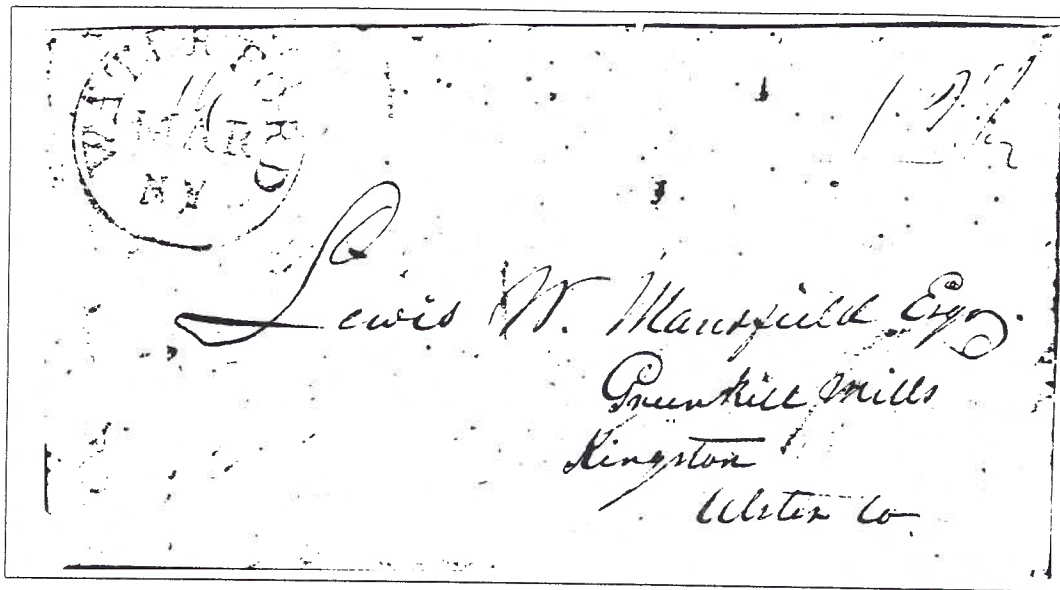 MAR
NY
12½
Lewis W. Mansfield Esqr.
Greenkill Mills
Kingston
Ulster Co